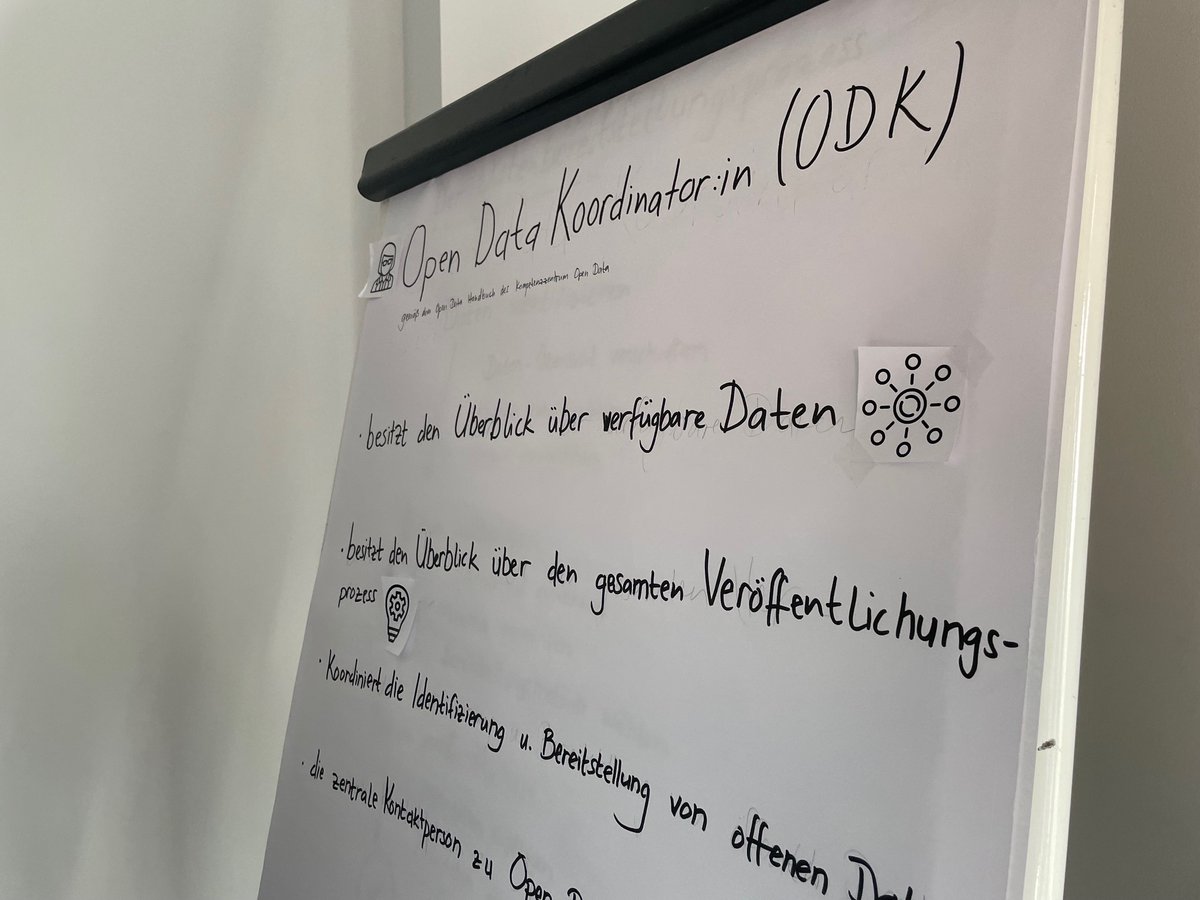 Open Data Koordinator:in (ODK)
gemäß dem Open Data Handbuch des Kompetenzzentrum Open Data
· besitzt den Überblick über verfügbare Daten
· besitzt den Überblick über den gesamten Veröffentlichungs-
prozess
· Koordiniert die Identifizierung u. Bereitstellung von offenen
· die zentrale Kontaktperson zu Open